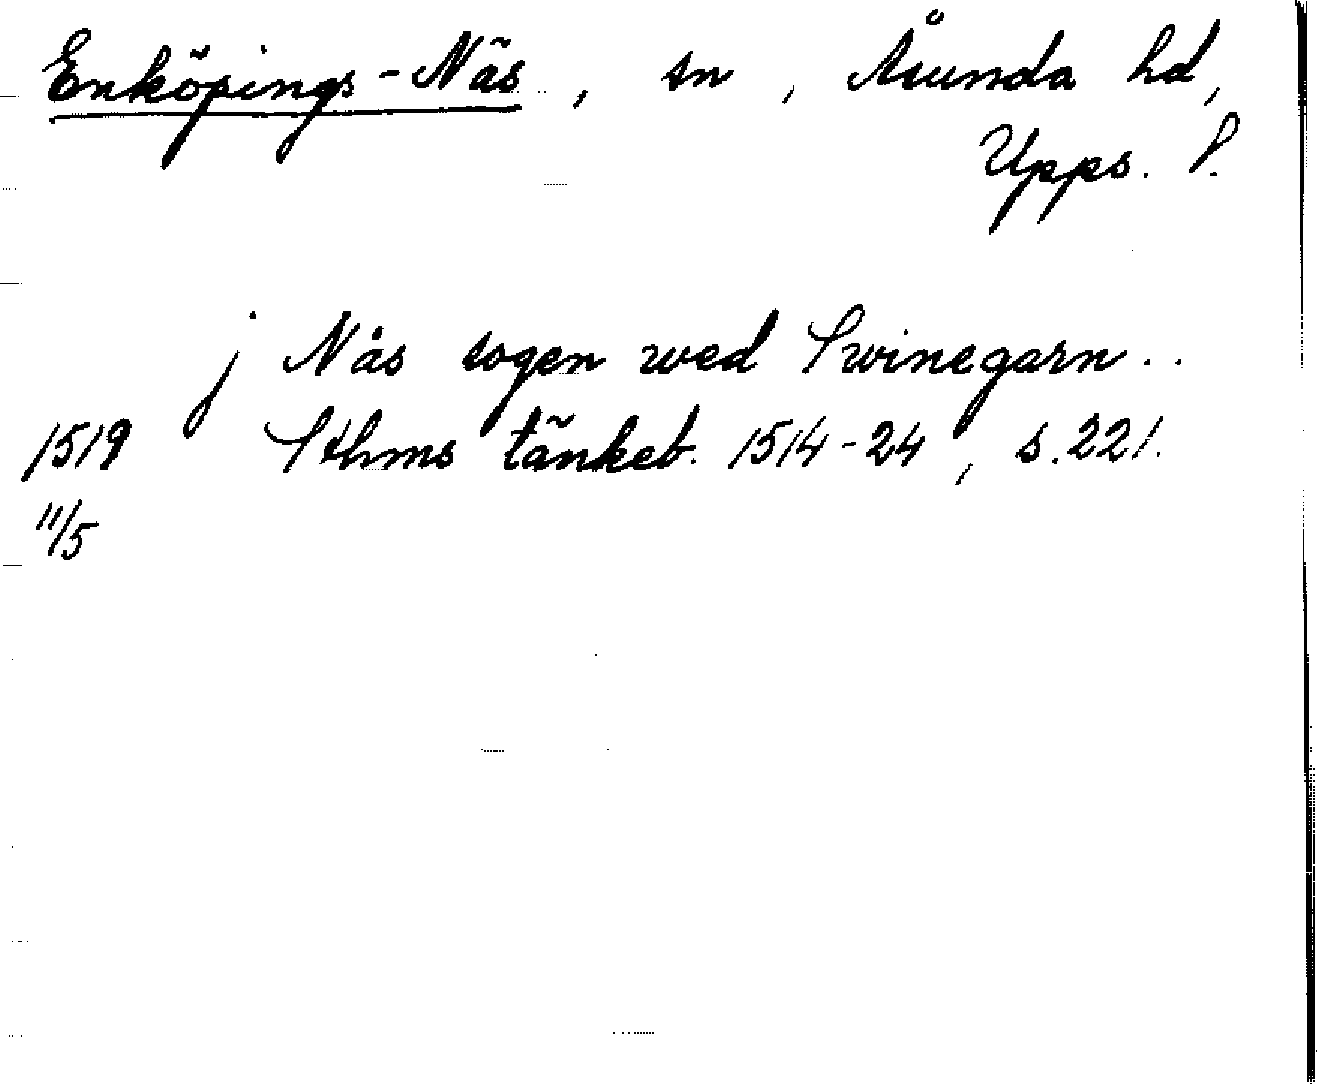 Enköpings-Näs, sn, Åsunda hd,
Upps. l.
j Näs sogen wed Swinegarn..
1519 Sthms tänkeb. 1514-24, s.221.
11/5